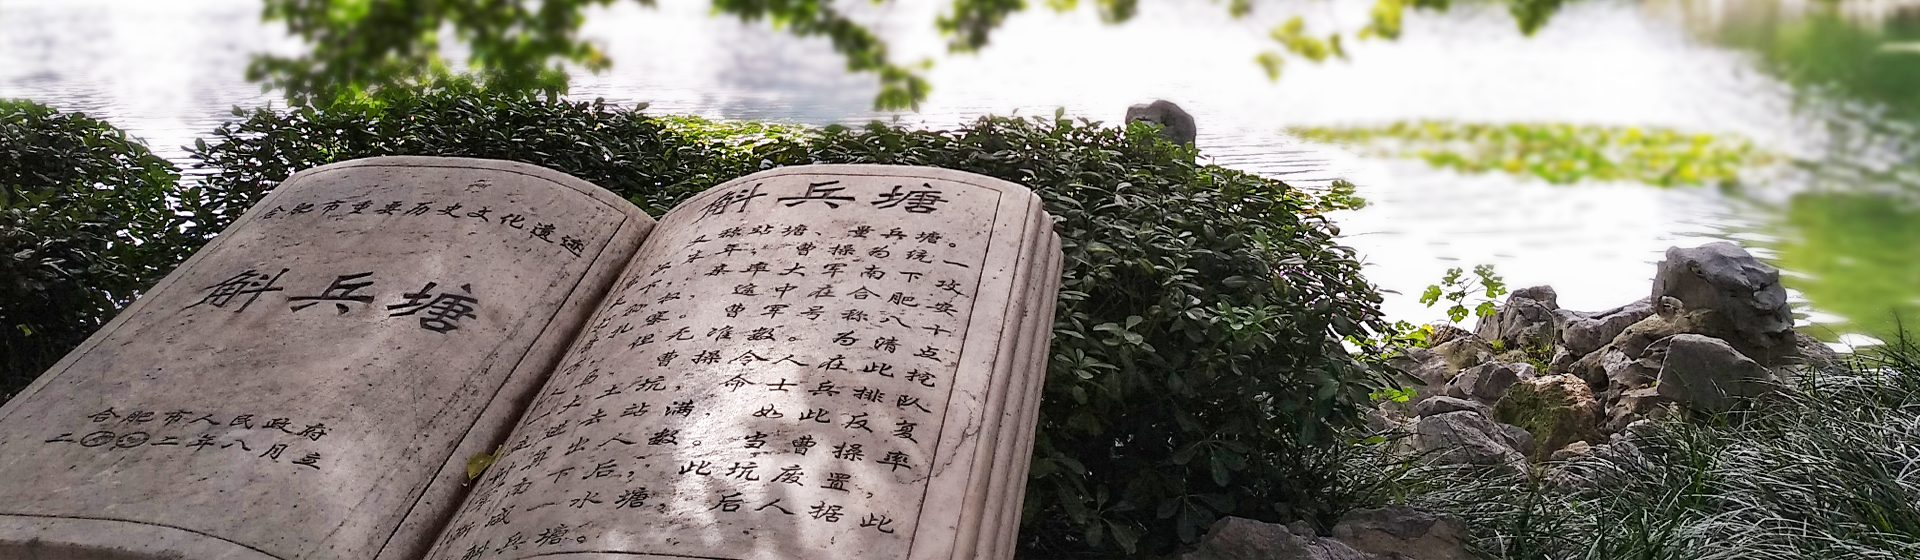 合肥市重要历史文化遗迹
斛兵塘
合肥市人民政府
二〇〇二年八月立
斛兵塘
又称站塘、量兵塘。
年，曹操为统一
率大军南下攻
途中在合肥安
曹军号称八十
但无准数。为清点
曹操令人在此挖
土坑，命士兵排队
进去站满，如此反复
出人数。当曹操率
南下后，此坑废置，
成一水塘，后人据此
斛兵塘。